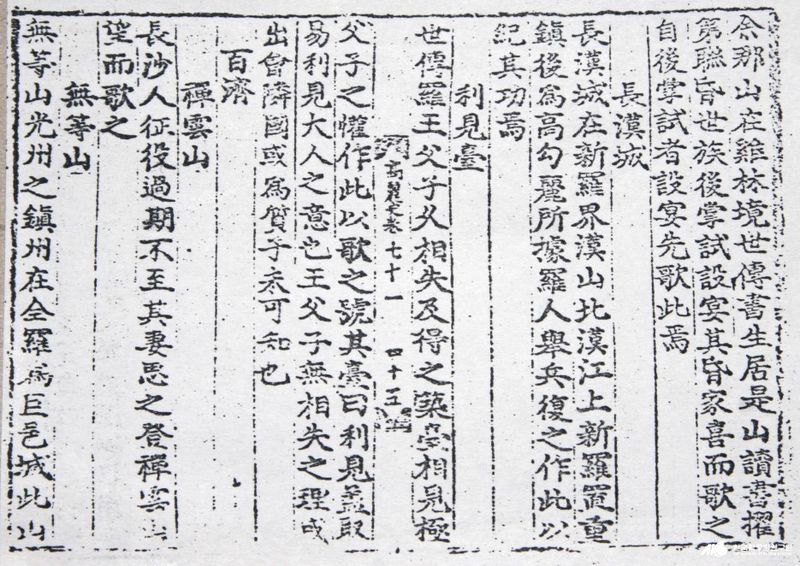 余那山在雞林境世傳書生居是山讀書擢
第聯昏世族後掌試設宴其昏家喜而歌之
自後掌試者設宴先歌此焉
長漢城
長漢城在新羅界漢山北漢江上新羅置重
鎮後爲高勾麗所據羅人舉兵復之作此以
紀其功焉
利見臺
世傳羅王父子久相失及得之築臺相見極
高麗史卷七十一 四十五
父子之懽作此以歌之號其臺曰利見盖取
易利見大人之意也王父子無相失之理或
出會隣國或爲質子未可知也
百濟
禪雲山
長沙人征役過期不至其妻思之登禪雲山
望而歌之
無等山
無等山光州之鎮州在全羅爲巨邑城此山